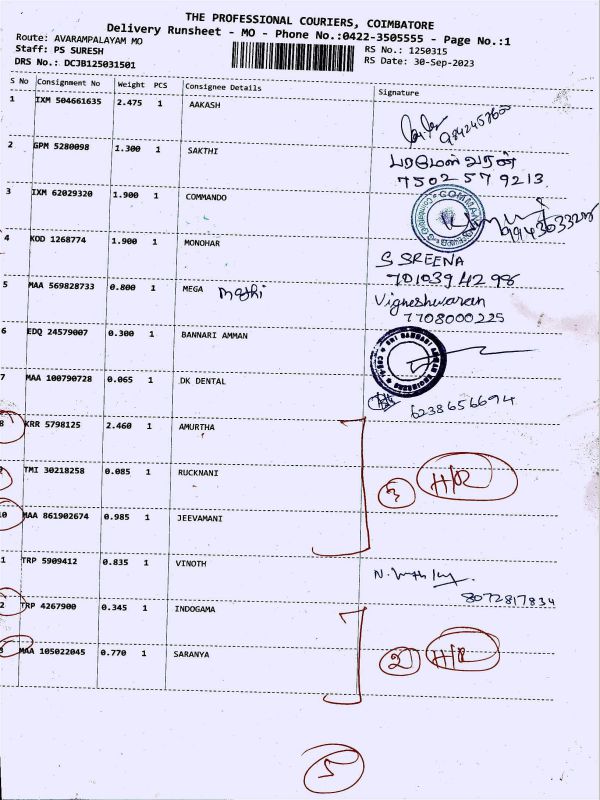 THE PROFESSIONAL COURIERS, COIMBATORE
Delivery Runsheet - MO - Phone No.:0422-3505555 - Page No.:1
Route: AVARAMPALAYAM MO RS No.: 1250315
Staff: PS SURESH RS Date: 30-Sep-2023
DRS No.: DCJB125031501
S No Consignment No Weight PCS Consignee Details Signature
1 IXM 504661635 2.475 1 AAKASH
2 GPM 5280098 1.300 1 SAKTHI
7502579213
3 IXM 62029320 1.900 1 COMMANDO
4 KOD 1268774 1.900 1 MONOHAR S SREENA
7010394296
5 MAA 569828733 0.800 1 MEGA Vigneshwaran
7708000225
6 EDQ 24579007 0.300 1 BANNARI AMMAN
7 MAA 100790728 0.065 1 DK DENTAL
6238656694
8 KRR 5798125 2.460 1 AMURTHA
TMI 30218258 0.085 1 RUCKNANI 3 H/R
10 MAA 861902674 0.985 1 JEEVAMANI
1 TRP 5909412 0.835 1 VINOTH
8072817834
2 TRP 4267900 0.345 1 INDOGAMA
3 MAA 105022045 0.770 1 SARANYA 2 H/R
5